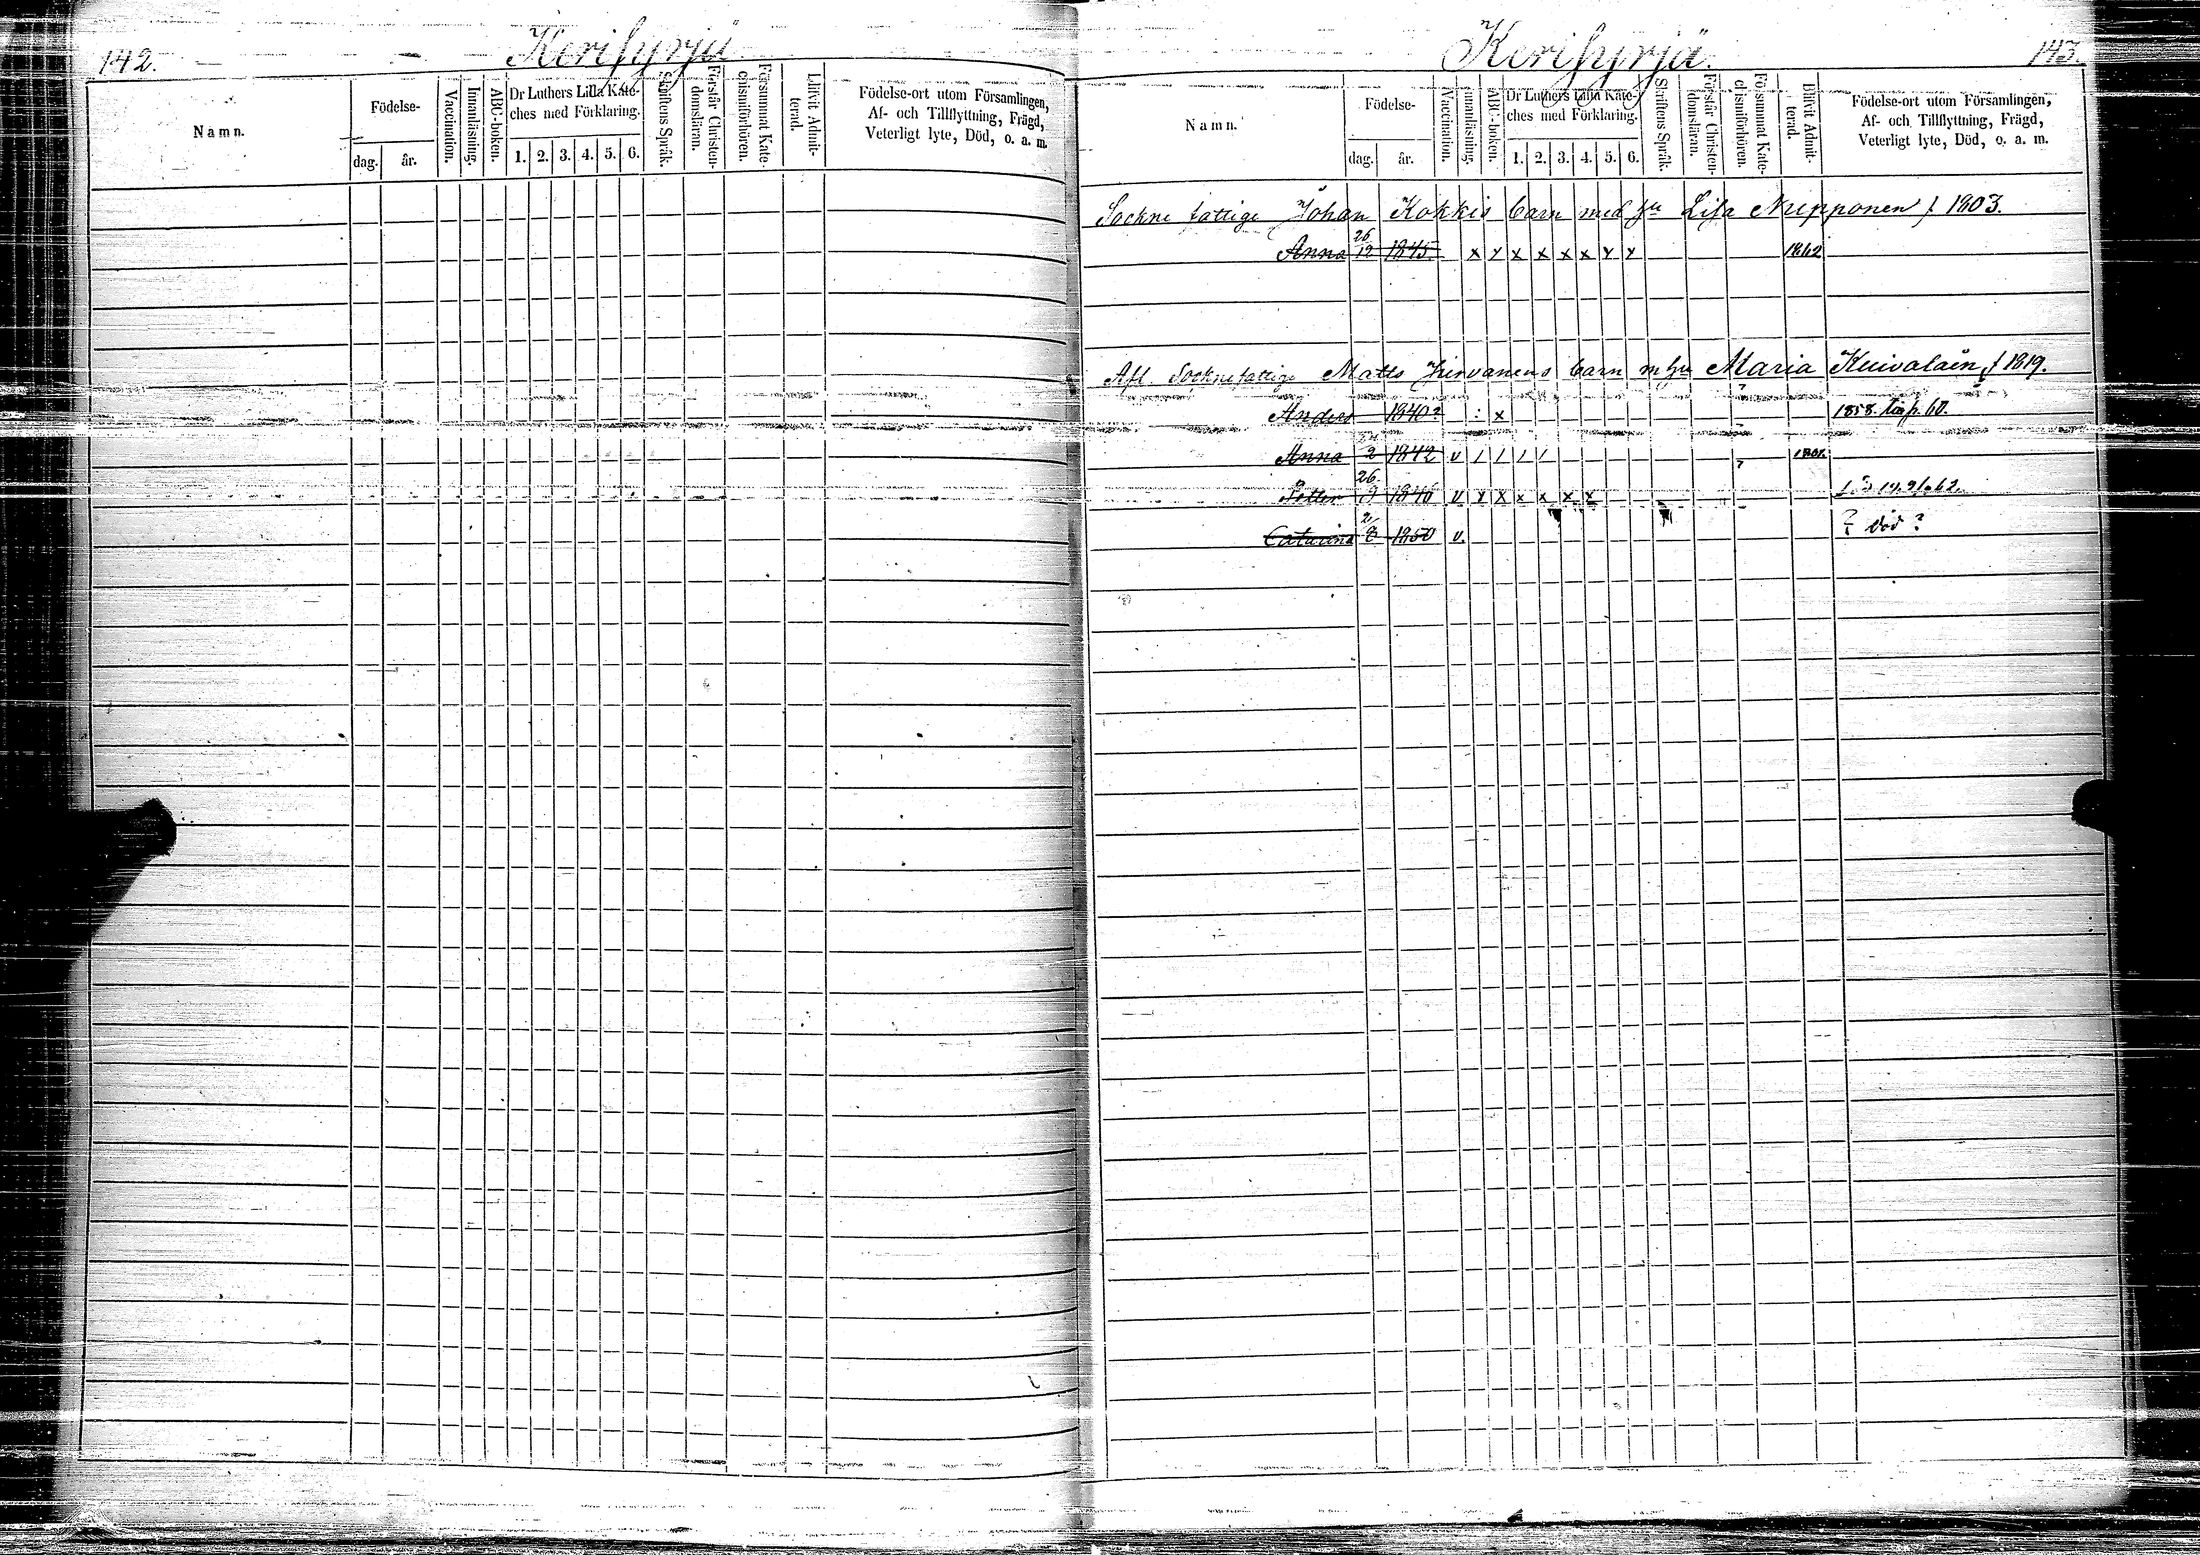 142. Kerisyrjä
Namn.
Födelse-
dag. år.
Vaccination.
Innanläsning.
ABC-boken.
Dr Luthers Lilla Kate-
ches med Förklaring.
1. 2. 3. 4. 5. 6.
Skriftens Språk.
Förstår Christen-
domsläran.
Försummat Kate-
chismiförhören.
Blifvit Admit-
terad.
Födelse-ort utom Församlingen,
Af- och Tillflyttning, Frägd,
Veterligt lyte, Död, o. a. m.
Kerisyrjä. 143.
Namn.
Födelse-
dag. år.
Vaccination.
Innanläsning.
ABC-boken.
Dr Luthers Lilla Kate-
ches med Förklaring.
1. 2. 3. 4. 5. 6.
Skriftens Språk.
Förstår Christen-
domsläran.
Försummat Kate-
chismiförhören.
Blifvit Admit-
terad.
Födelse-ort utom Församlingen,
Af- och Tillflyttning, Frägd,
Veterligt lyte, Död, o. a. m.
Sockne fattige Johan Kokkis barn med hu Lisa Nupponen f 1803.
Anna 26/12 1845. x x x x x x x x 1862
Afl. Socknefattige Matts Hirvanens barn m hu Maria Kuivalain f 1819.
Anders 1840? : x 1858. 60.
Anna 2 1842 v / / / /
Petter 26/9 1846 v x x x x x x 62.
Catarina 2/8 1850 v. ? död?